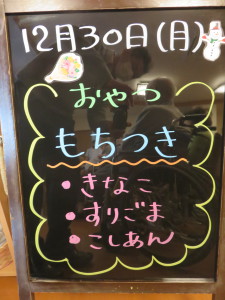 12月30日(月)
おやつ
もちつき
• きなこ
• すりごま
• こしあん